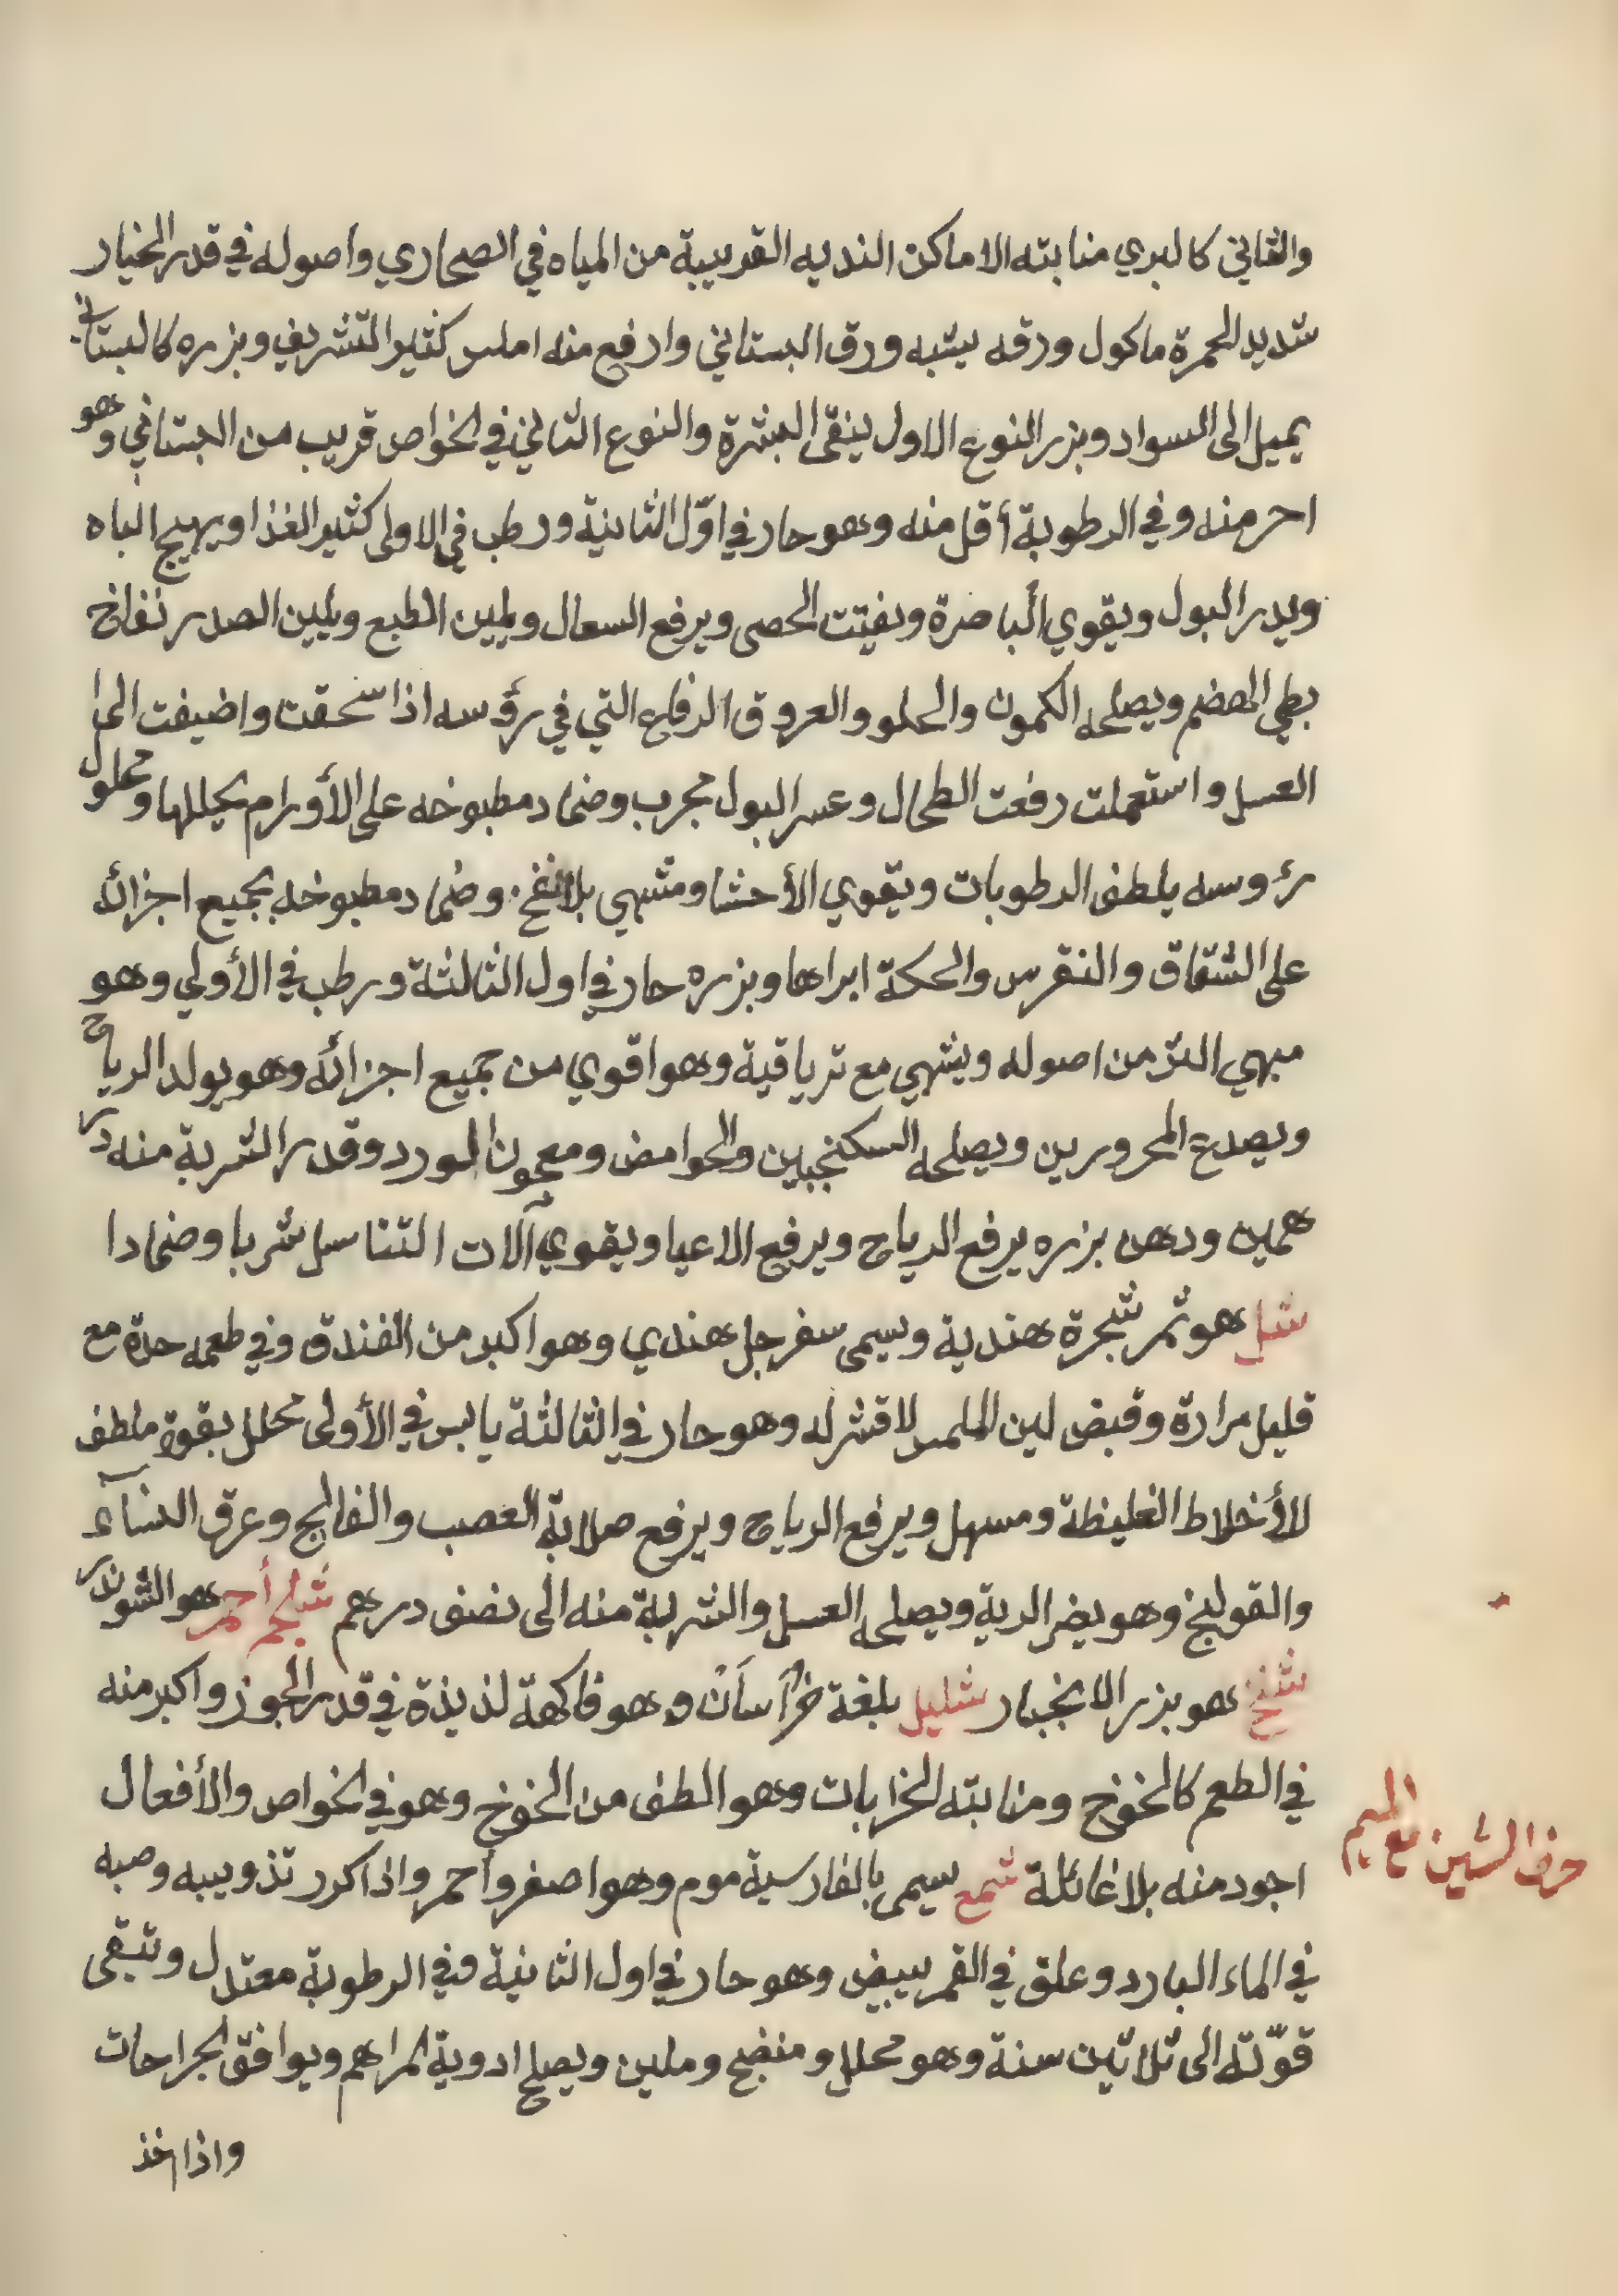 والثاني كالبري منابته الاماكن النديه القريبة من المياه في الصحاري واصوله في قدر الخيار
شديد الحمرة ماكول ورقه يشبه ورق البستاني وارفع منه املس كثير التشريف وبزره كالبستاني
يميل الى السواد وبزر النوع الاول ينقى البشرة والنوع الثاني في الخواص قريب من البستاني وهو
احر منه وفي الرطوبة أقل منه وهو حار في اوّل الثانية ورطب في الاولى كثير الغذا ويهيج الباه
ويدر البول ويقوي الباصرة ويفتت الحصى ويرفع السعال ويلين الطبع ويلين الصدر نفاخ
بطي الهضم ويصلحه الكمون والحلو والعروق الرفاع التي في رؤسه اذا سحقت واضيفت الى
العسل واستعملت رفعت الطحال وعسر البول مجرب وضماد مطبوخه على الأورام يحللها ومحلول
رؤسه يلطف الرطوبات ويقوي الأحشا ومشهي بلا نفخ وضماد مطبوخه بجميع اجزائه
على الشقاق والنقرس والحكة ابراها وبزره حار في اول الثالثة ورطب في الأولى وهو
مبهي اكثر من اصوله ويشهي مع ترياقية وهو اقوي من جميع اجزائه وهو يولد الرياح
ويصدع المحرورين ويصلحه السكنجبين والحوامض ومعجون الورد وقدر الشربة منه در
همين ودهن بزره يرفع الرياح ويرفع الاعيا ويقوي آلات التناسل شربا وضمادا
شل هو ثمر شجرة هندية ويسمى سفرجل هندي وهو اكبر من الفندق وفي طعمه حدة مع
قليل مرارة وقبض لين الملمس لا قشر له وهو حار في الثالثة يابس في الأولى محلل بقوة ملطف
للأخلاط الغليظة ومسهل ويرفع الرياح ويرفع صلابة العصب والفالج وعرق النسآء
والقولنج وهو يضر الرية ويصلحه العسل والشربة منه الى نصف درهم شلجم أحمر هو الشوندر
هو بزر الانجبار شليل بلغة خرَاسَان وهو فاكهة لذيذة في قدر الجوز واكبر منه
في الطعم كالخوخ ومنابته الخرابات وهو الطف من الخوخ وهو في الخواص والأفعال
اجود منه بلا غائلة شمع يسمى بالفارسية موم وهو اصفر وأحمر واذا كرر تذويبه وصبه
في الماء البارد وعلق في القمر يبيض وهو حار في اول الثانية وفي الرطوبة معتدل وتبقى
قوّته الى ثلاثين سنة وهو محلل ومنضج وملين ويصلح ادوية المراهم ويوافق الجراحات
واذا اخذ
حرف الشين مع الميم